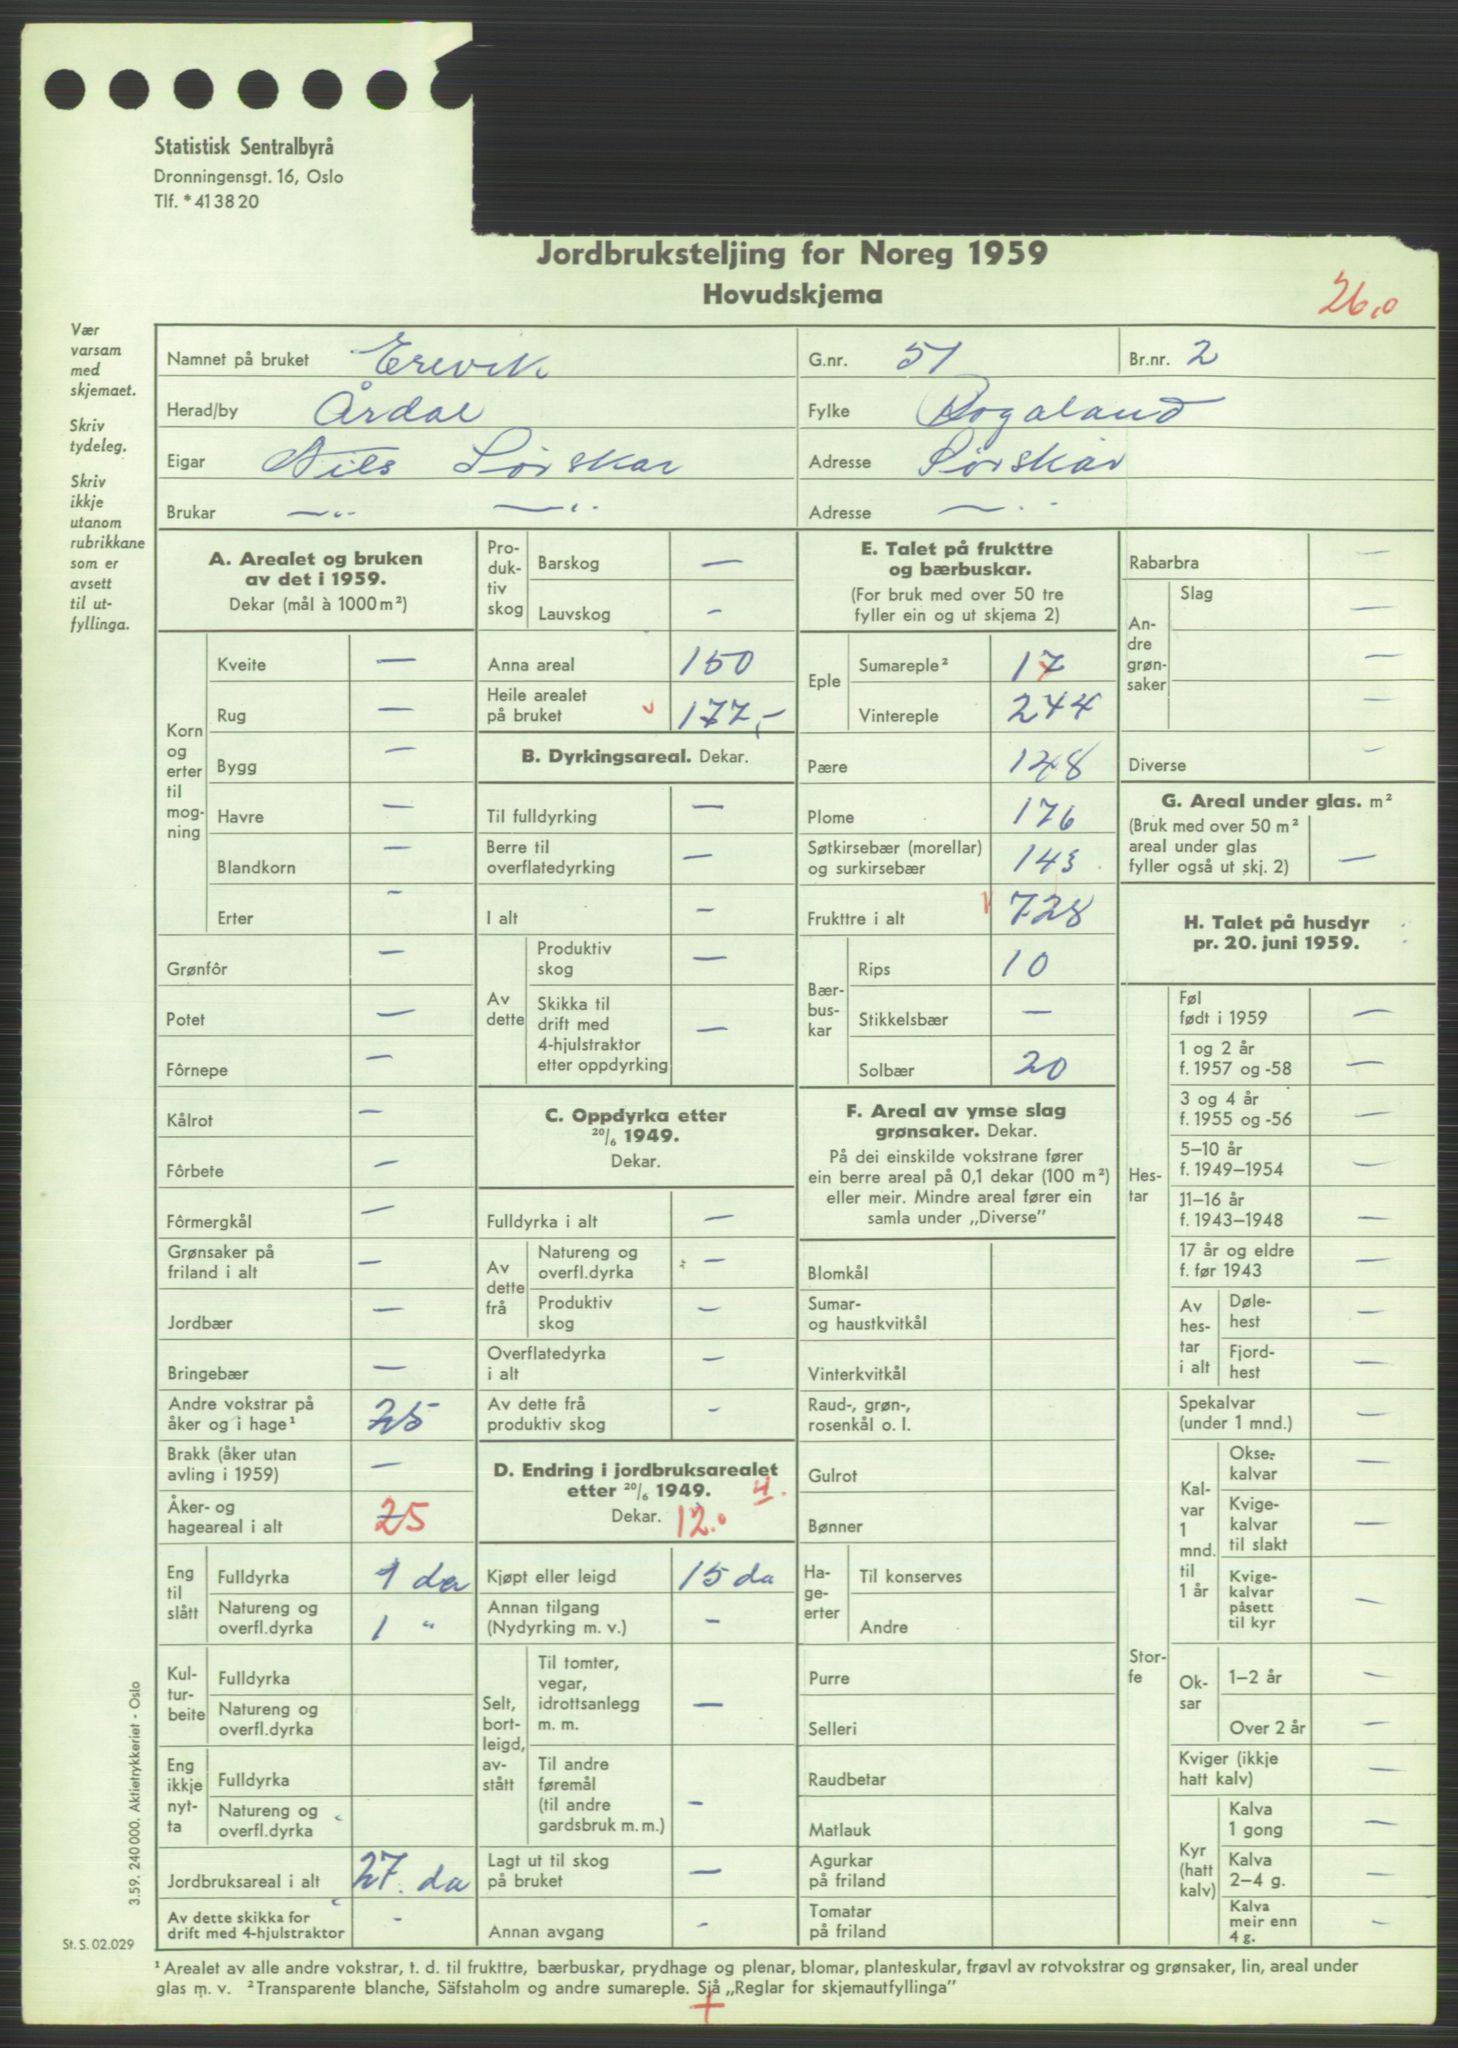 Statistisk Sentralbyrå
Dronningensgt. 16, Oslo
Tlf. * 41 38 20
Jordbruksteljing for Noreg 1959
Hovudskjema
26,0
Vær
varsam
med
skjemaet.
Skriv
tydeleg.
Skriv
ikkje
utanom
rubrikkane
som er
avsett
til ut-
fyllinga.
Namnet på bruket Erevik G.nr. 51 Br.nr. 2
Herad/by Årdal Fylke Rogaland
Eigar Nils Sørskår Adresse Sørskår
Brukar — " — — " — Adresse — " —
A. Arealet og bruken
av det i 1959.
Dekar (mål à 1000 m²)
Korn
og
erter
til
mog-
ning
Kveite —
Rug —
Bygg —
Havre —
Blandkorn —
Erter —
Grønfôr —
Potet —
Fôrnepe —
Kålrot —
Fôrbete —
Fôrmergkål —
Grønsaker på
friland i alt —
Jordbær —
Bringebær —
Andre vokstrar på
åker og i hage¹ 25
Brakk (åker utan
avling i 1959) —
Åker- og
hageareal i alt 25
Eng
til
slått
Fulldyrka 1 da
Natureng og
overfl.dyrka 1 "
Kul-
tur-
beite
Fulldyrka
Natureng og
overfl.dyrka
Eng
ikkje
nyt-
ta
Fulldyrka
Natureng og
overfl.dyrka
Jordbruksareal i alt 27. da
Av dette skikka for
drift med 4-hjulstraktor -
Pro-
duk-
tiv
skog
Barskog —
Lauvskog —
Anna areal 150
Heile arealet
på bruket 177,-
B. Dyrkingsareal. Dekar.
Til fulldyrking —
Berre til
overflatedyrking —
I alt —
Av
dette
Produktiv
skog —
Skikka til
drift med
4-hjulstraktor
etter oppdyrking —
C. Oppdyrka etter
20/6 1949.
Dekar.
Fulldyrka i alt —
Av
dette
frå
Natureng og
overfl.dyrka —
Produktiv
skog —
Overflatedyrka
i alt —
Av dette frå
produktiv skog -
D. Endring i jordbruksarealet
etter 20/6 1949. 4.
Dekar. 12.0
Kjøpt eller leigd 15 da
Annan tilgang
(Nydyrking m. v.) —
Selt,
bort-
leigd,
av-
stått
Til tomter,
vegar,
idrottsanlegg
m. m. —
Til andre
føremål
(til andre
gardsbruk m. m.) -
Lagt ut til skog
på bruket —
Annan avgang -
E. Talet på frukttre
og bærbuskar.
(For bruk med over 50 tre
fyller ein og ut skjema 2)
Eple
Sumareple² 17
Vintereple 244
Pære 148
Plome 176
Søtkirsebær (morellar)
og surkirsebær 143
Frukttre i alt 728
Bær-
bus-
kar
Rips 10
Stikkelsbær —
Solbær 20
F. Areal av ymse slag
grønsaker. Dekar.
På dei einskilde vokstrane fører
ein berre areal på 0,1 dekar (100 m²)
eller meir. Mindre areal fører ein
samla under „Diverse”
Blomkål
Sumar-
og haustkvitkål
Vinterkvitkål
Raud-, grøn-,
rosenkål o. l.
Gulrot
Bønner
Ha-
ge-
erter
Til konserves
Andre
Purre
Selleri
Raudbetar
Matlauk
Agurkar
på friland
Tomatar
på friland
Rabarbra —
An-
dre
grøn-
saker
Slag —
—
—
Diverse —
G. Areal under glas. m²
(Bruk med over 50 m²
areal under glas
fyller også ut skj. 2) —
H. Talet på husdyr
pr. 20. juni 1959.
Hes-
tar
Føl
født i 1959 —
1 og 2 år
f. 1957 og -58 —
3 og 4 år
f. 1955 og -56 —
5–10 år
f. 1949–1954 —
11–16 år
f. 1943–1948 —
17 år og eldre
f. før 1943 —
Av
hes-
tar
i alt
Døle-
hest —
Fjord-
hest —
Stor-
fe
Spekalvar
(under 1 mnd.) —
Kal-
var
1
mnd.
til
1 år
Okse-
kalvar —
Kvige-
kalvar
til slakt —
Kvige-
kalvar
påsett
til kyr —
Ok-
sar
1–2 år —
Over 2 år —
Kviger (ikkje
hatt kalv) —
Kyr
(hatt
kalv)
Kalva
1 gong —
Kalva
2–4 g. —
Kalva
meir enn
4 g. —
3.59. 240 000. Aktietrykkeriet - Oslo
St. S. 02.029
¹ Arealet av alle andre vokstrar, t. d. til frukttre, bærbuskar, prydhage og plenar, blomar, planteskular, frøavl av rotvokstrar og grønsaker, lin, areal under
glas m. v. ² Transparente blanche, Säfstaholm og andre sumareple. Sjå „Reglar for skjemautfyllinga”
+